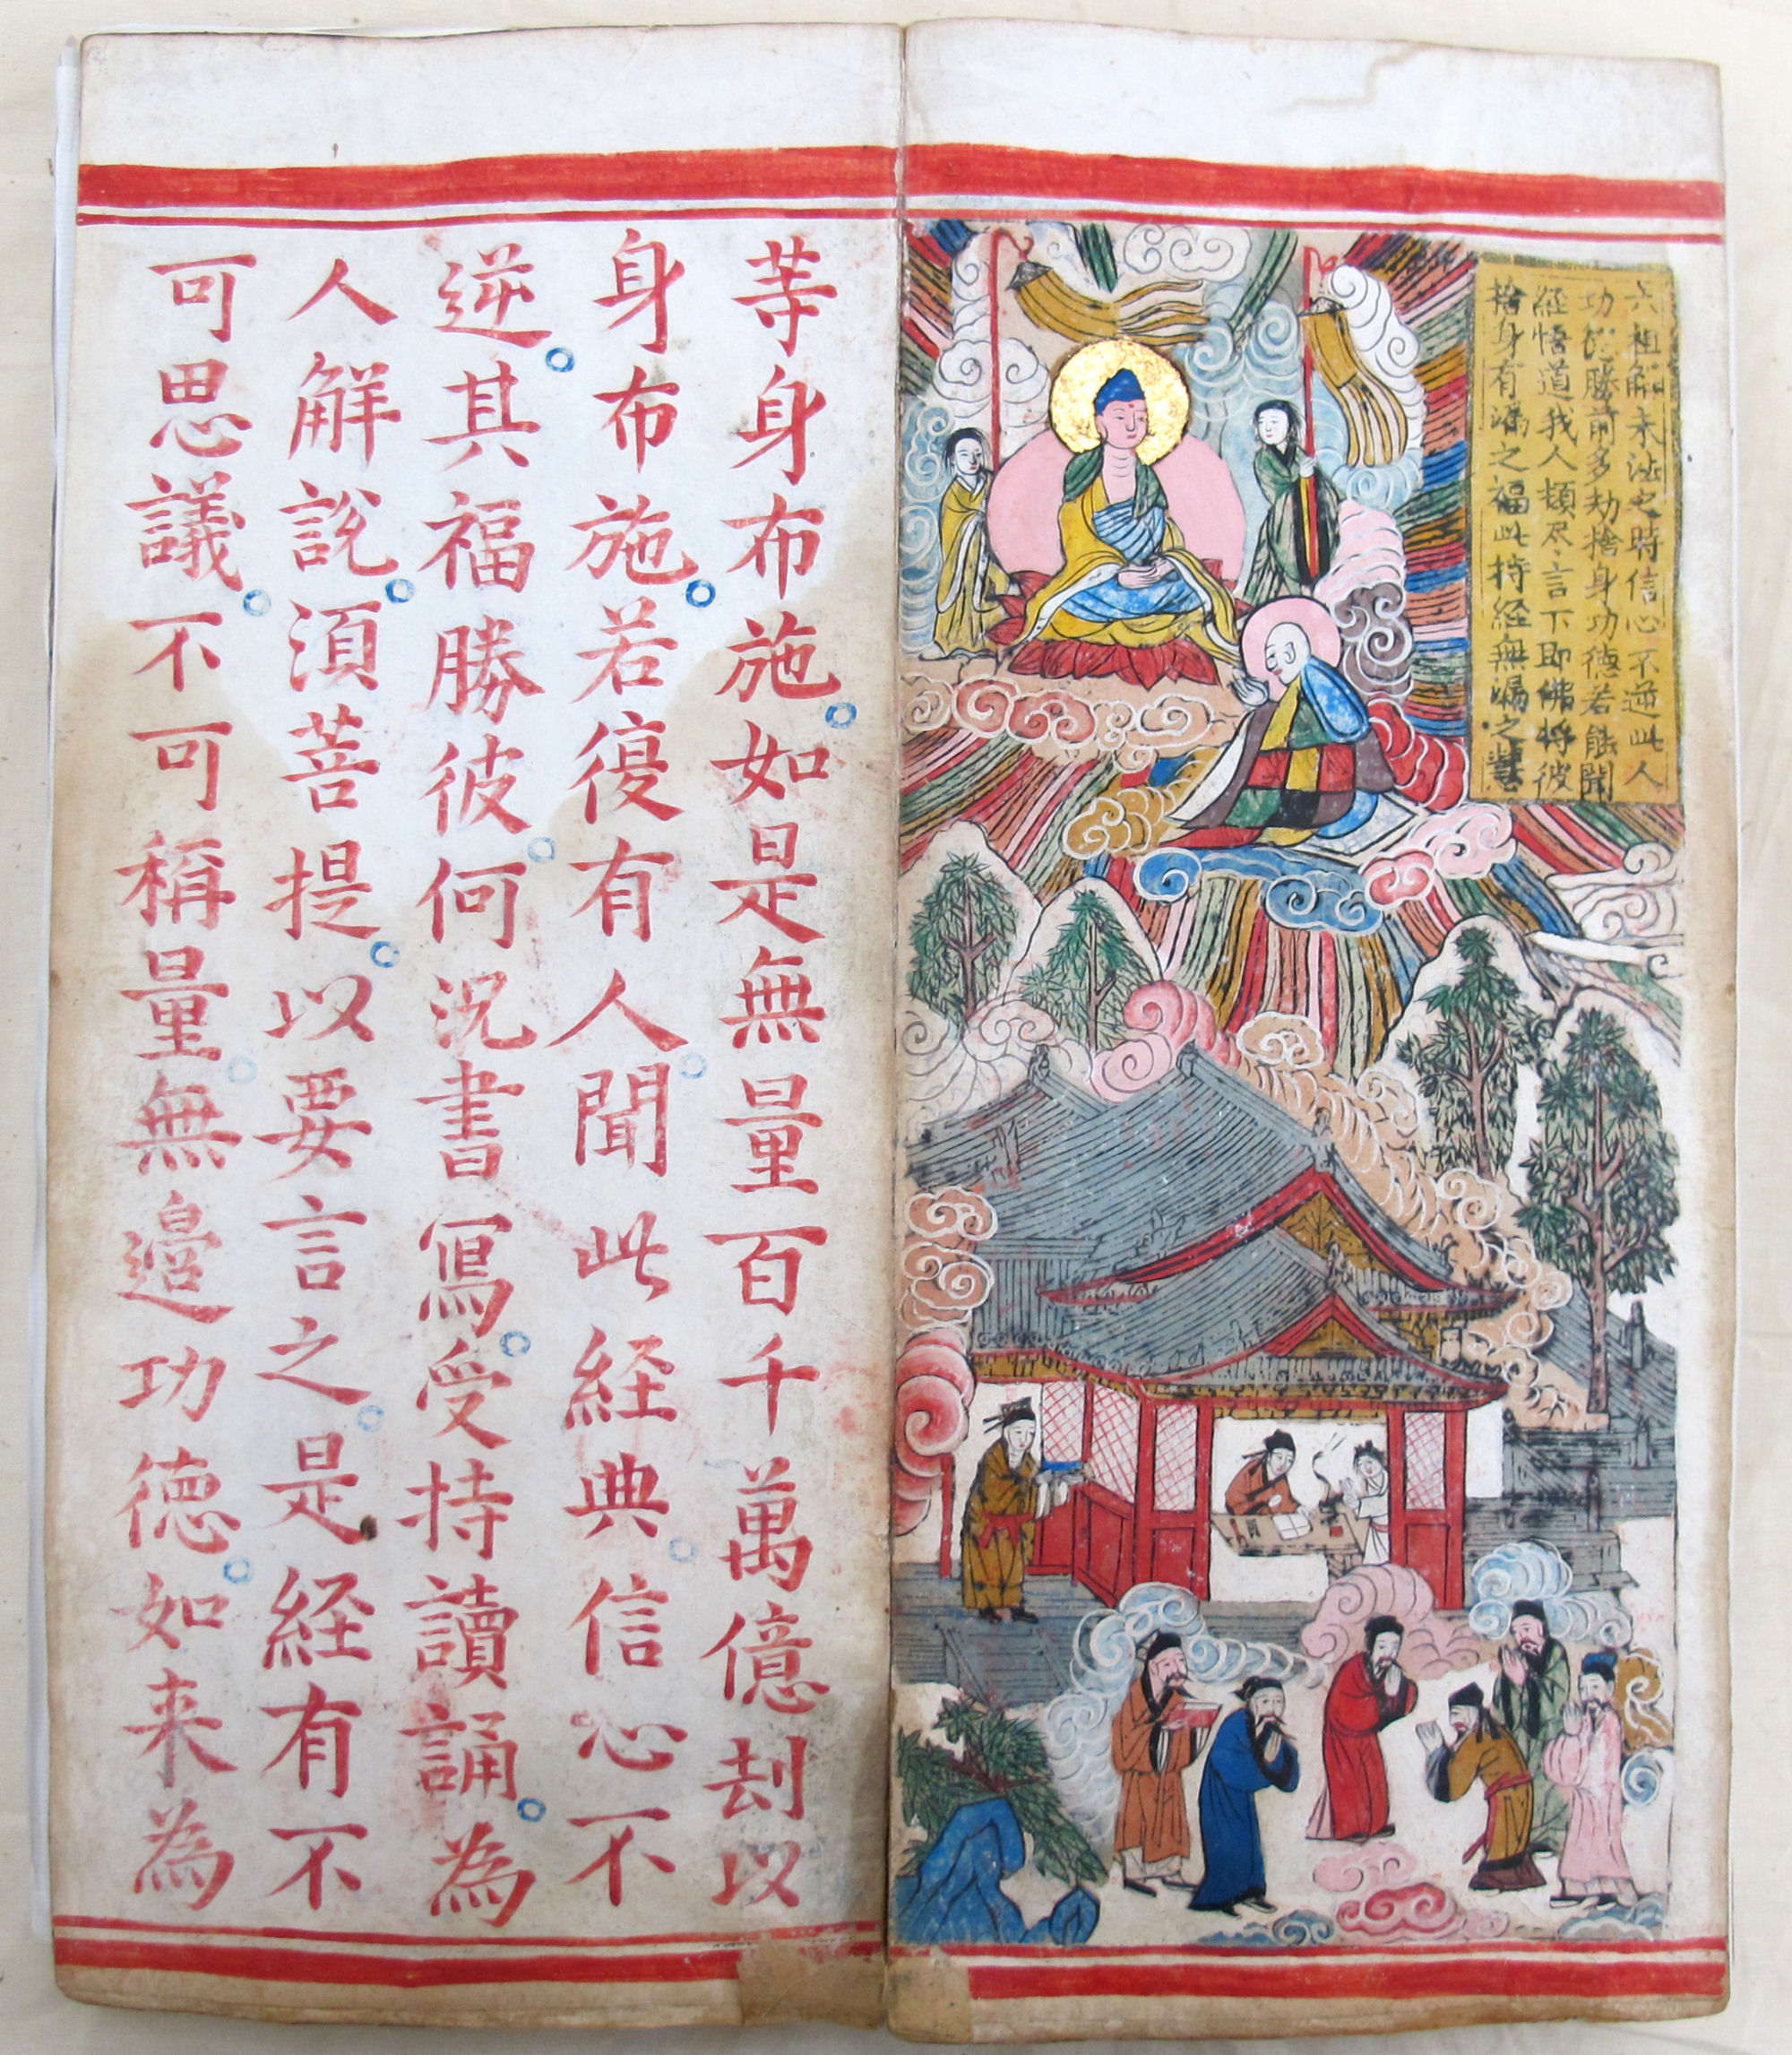 六祖解未法之時信心不逆此人
功德勝前多劫捨身功德若能聞
経悟道我人頓尽言下即佛将彼
捨身有漏之福此持経無漏之慧
等身布施如是無量百千萬億刼以
身布施若復有人聞此経典信心不
逆其福勝彼何況書寫受持讀誦為
人解說須菩提以要言之是経有不
可思議不可稱量無邊功德如来為